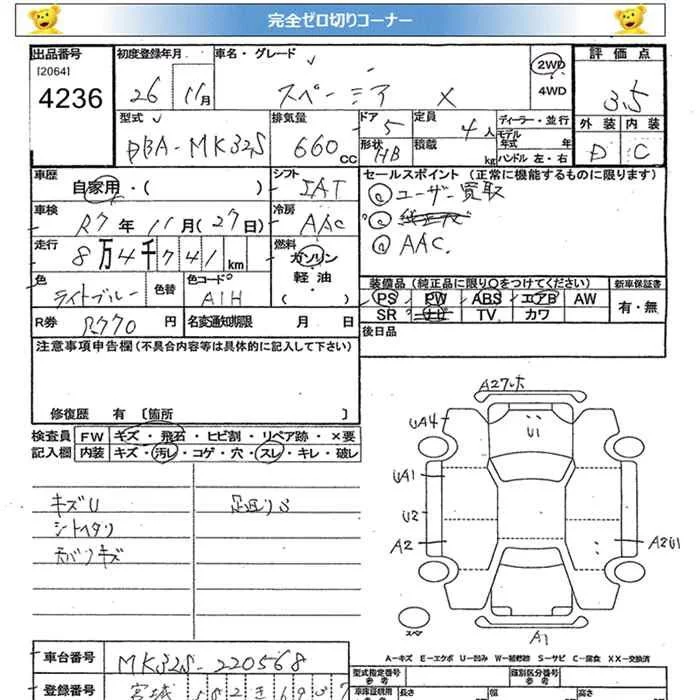 完全ゼロ切りコーナー
出品番号 初度登録年月 車名・グレード 2WD 評価点
[2064] 4236 26 11月 スペーシア X 4WD 3.5
型式 排気量 ドア 定員 ディーラー・並行 外装 内装
DBA-MK32S 660cc 5 4人 モデル年式 年 D C
形状 HB 積載 kg ハンドル 左・右
車歴 自家用・( ) シフト IAT セールスポイント(正常に機能するものに限ります)
ユーザー買取
車検 R7年11月(27日) 冷房 AAC
AAC.
走行 8万4千741km 燃料 ガソリン・軽油( )
色 ライトブルー 色替 色コードNo A1H
装備品(純正品に限り○をつけてください) 新車保証書
PS PW ABS エアB AW 有・無
SR ナビ TV カワ
R券 円 名変通知期限 月 日 後日品
注意事項申告欄(不具合内容等は具体的に記入して下さい)
修復歴 有[箇所 ]
検査員記入欄 FW キズ・飛石・ヒビ割・リペア跡・×要
内装 キズ・汚レ・コゲ・穴・スレ・キレ・破レ
キズU
シートヘタリ
A27レホ
UA4
U1
UA1
U2
A2
A2U1
スペア
A1
A-キズ E-エクボ U-凹み W-補修跡 S-サビ C-腐食 XX-交換済
車台番号 MK32S-220568
型式指定番号 参考 類別区分番号 参考
登録番号 宮城
車庫証明用 参考 長さ 幅 高さ